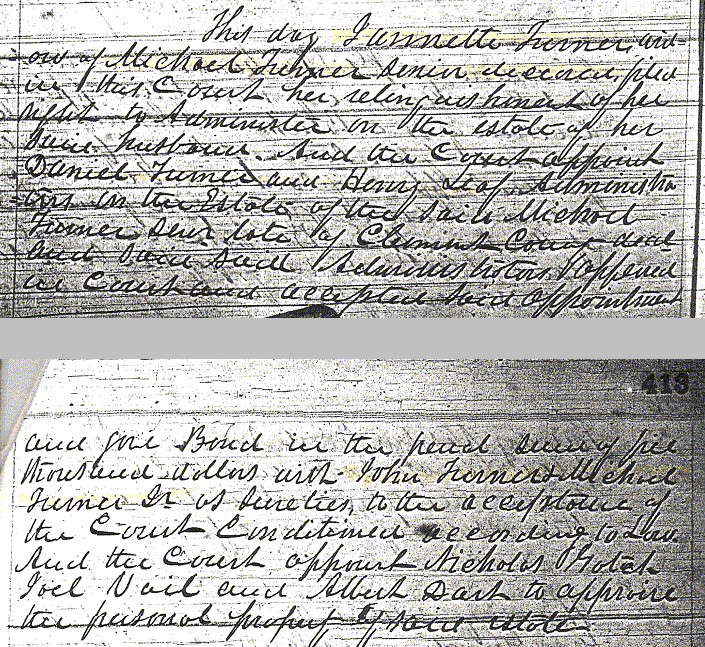 This day Jannette Turner, wid-
ow of Michael Turner Senior deceased, filed
in this Court her relinquishment of her
right to Administer on the estate of her
Said husband. And the Court appoint
Daniel Turner and Henry Leaf Administra-
tors on the Estate of the Said Michael
Turner Senr late of Clermont County decd
and Said Said Administrators appeared
in Court and accepted Said appointment
418
and give Bond in the penal sum of five
thousand dollars with John Turner & Michael
Turner Jr as Sureties, to the acceptance of
the Court Conditioned according to Law.
And the Court appoint Nicholas
Joel Vail and Albert Dart to appraise
the personal property of Said estate